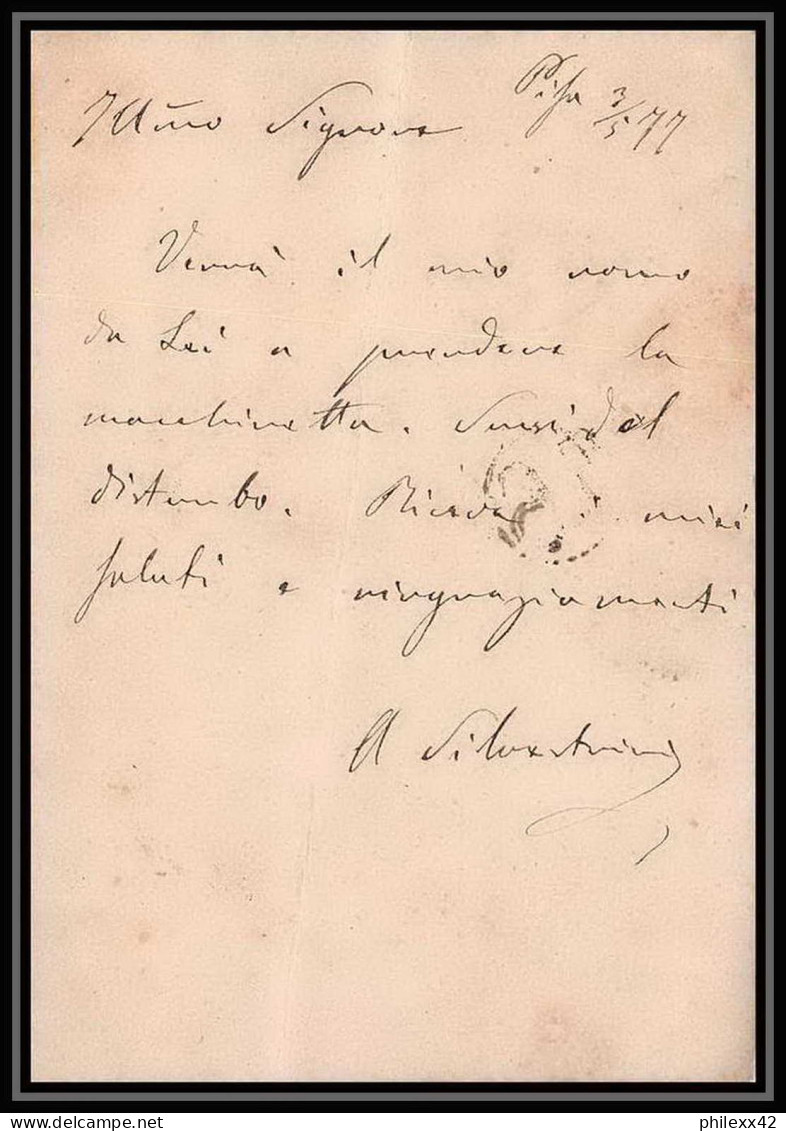 Pisa 3/5 77
Illmo Signore
Verrà il mio uomo
da Lei a prendere la
macchinetta. Scusi del
disturbo. Riceva i miei
saluti e ringraziamenti
A Silvestrini
philexx42